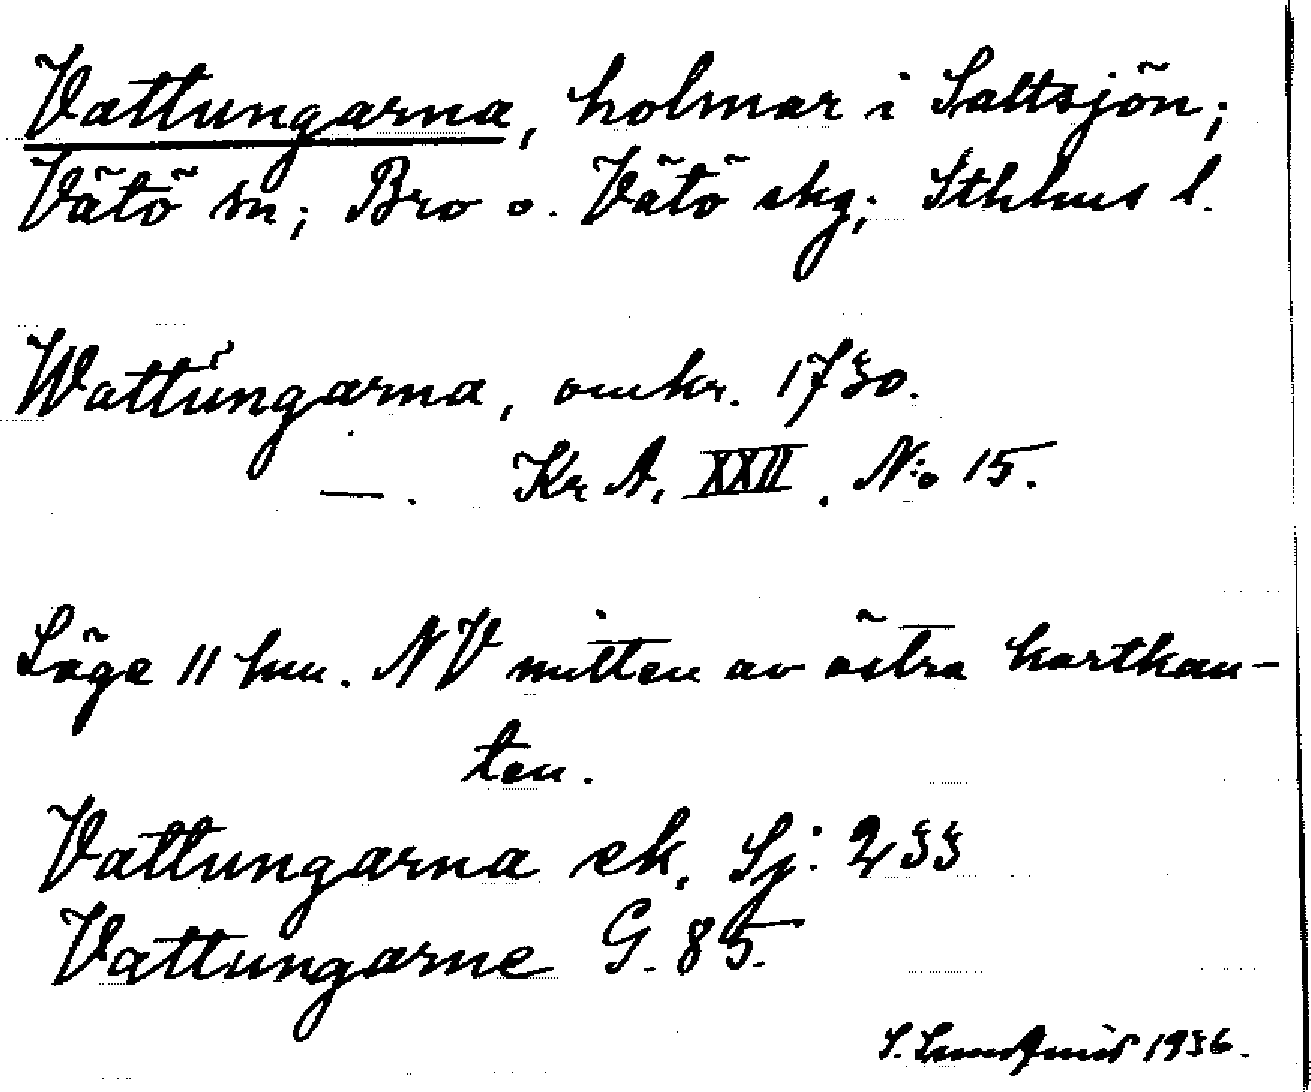 Vattungarna, holmar i Saltsjön;
Vätö sn; Bro o. Vätö skg; Sthlms l.
Wattungarna, omkr. 1730.
—. Kr A, XXII. N:o 15.
Läge 11 km. NV mitten av östra kartkan-
ten.
Vattungarna ek. Sj: 233
Vattungarne G. 85.
S. Lundqvist 1936.